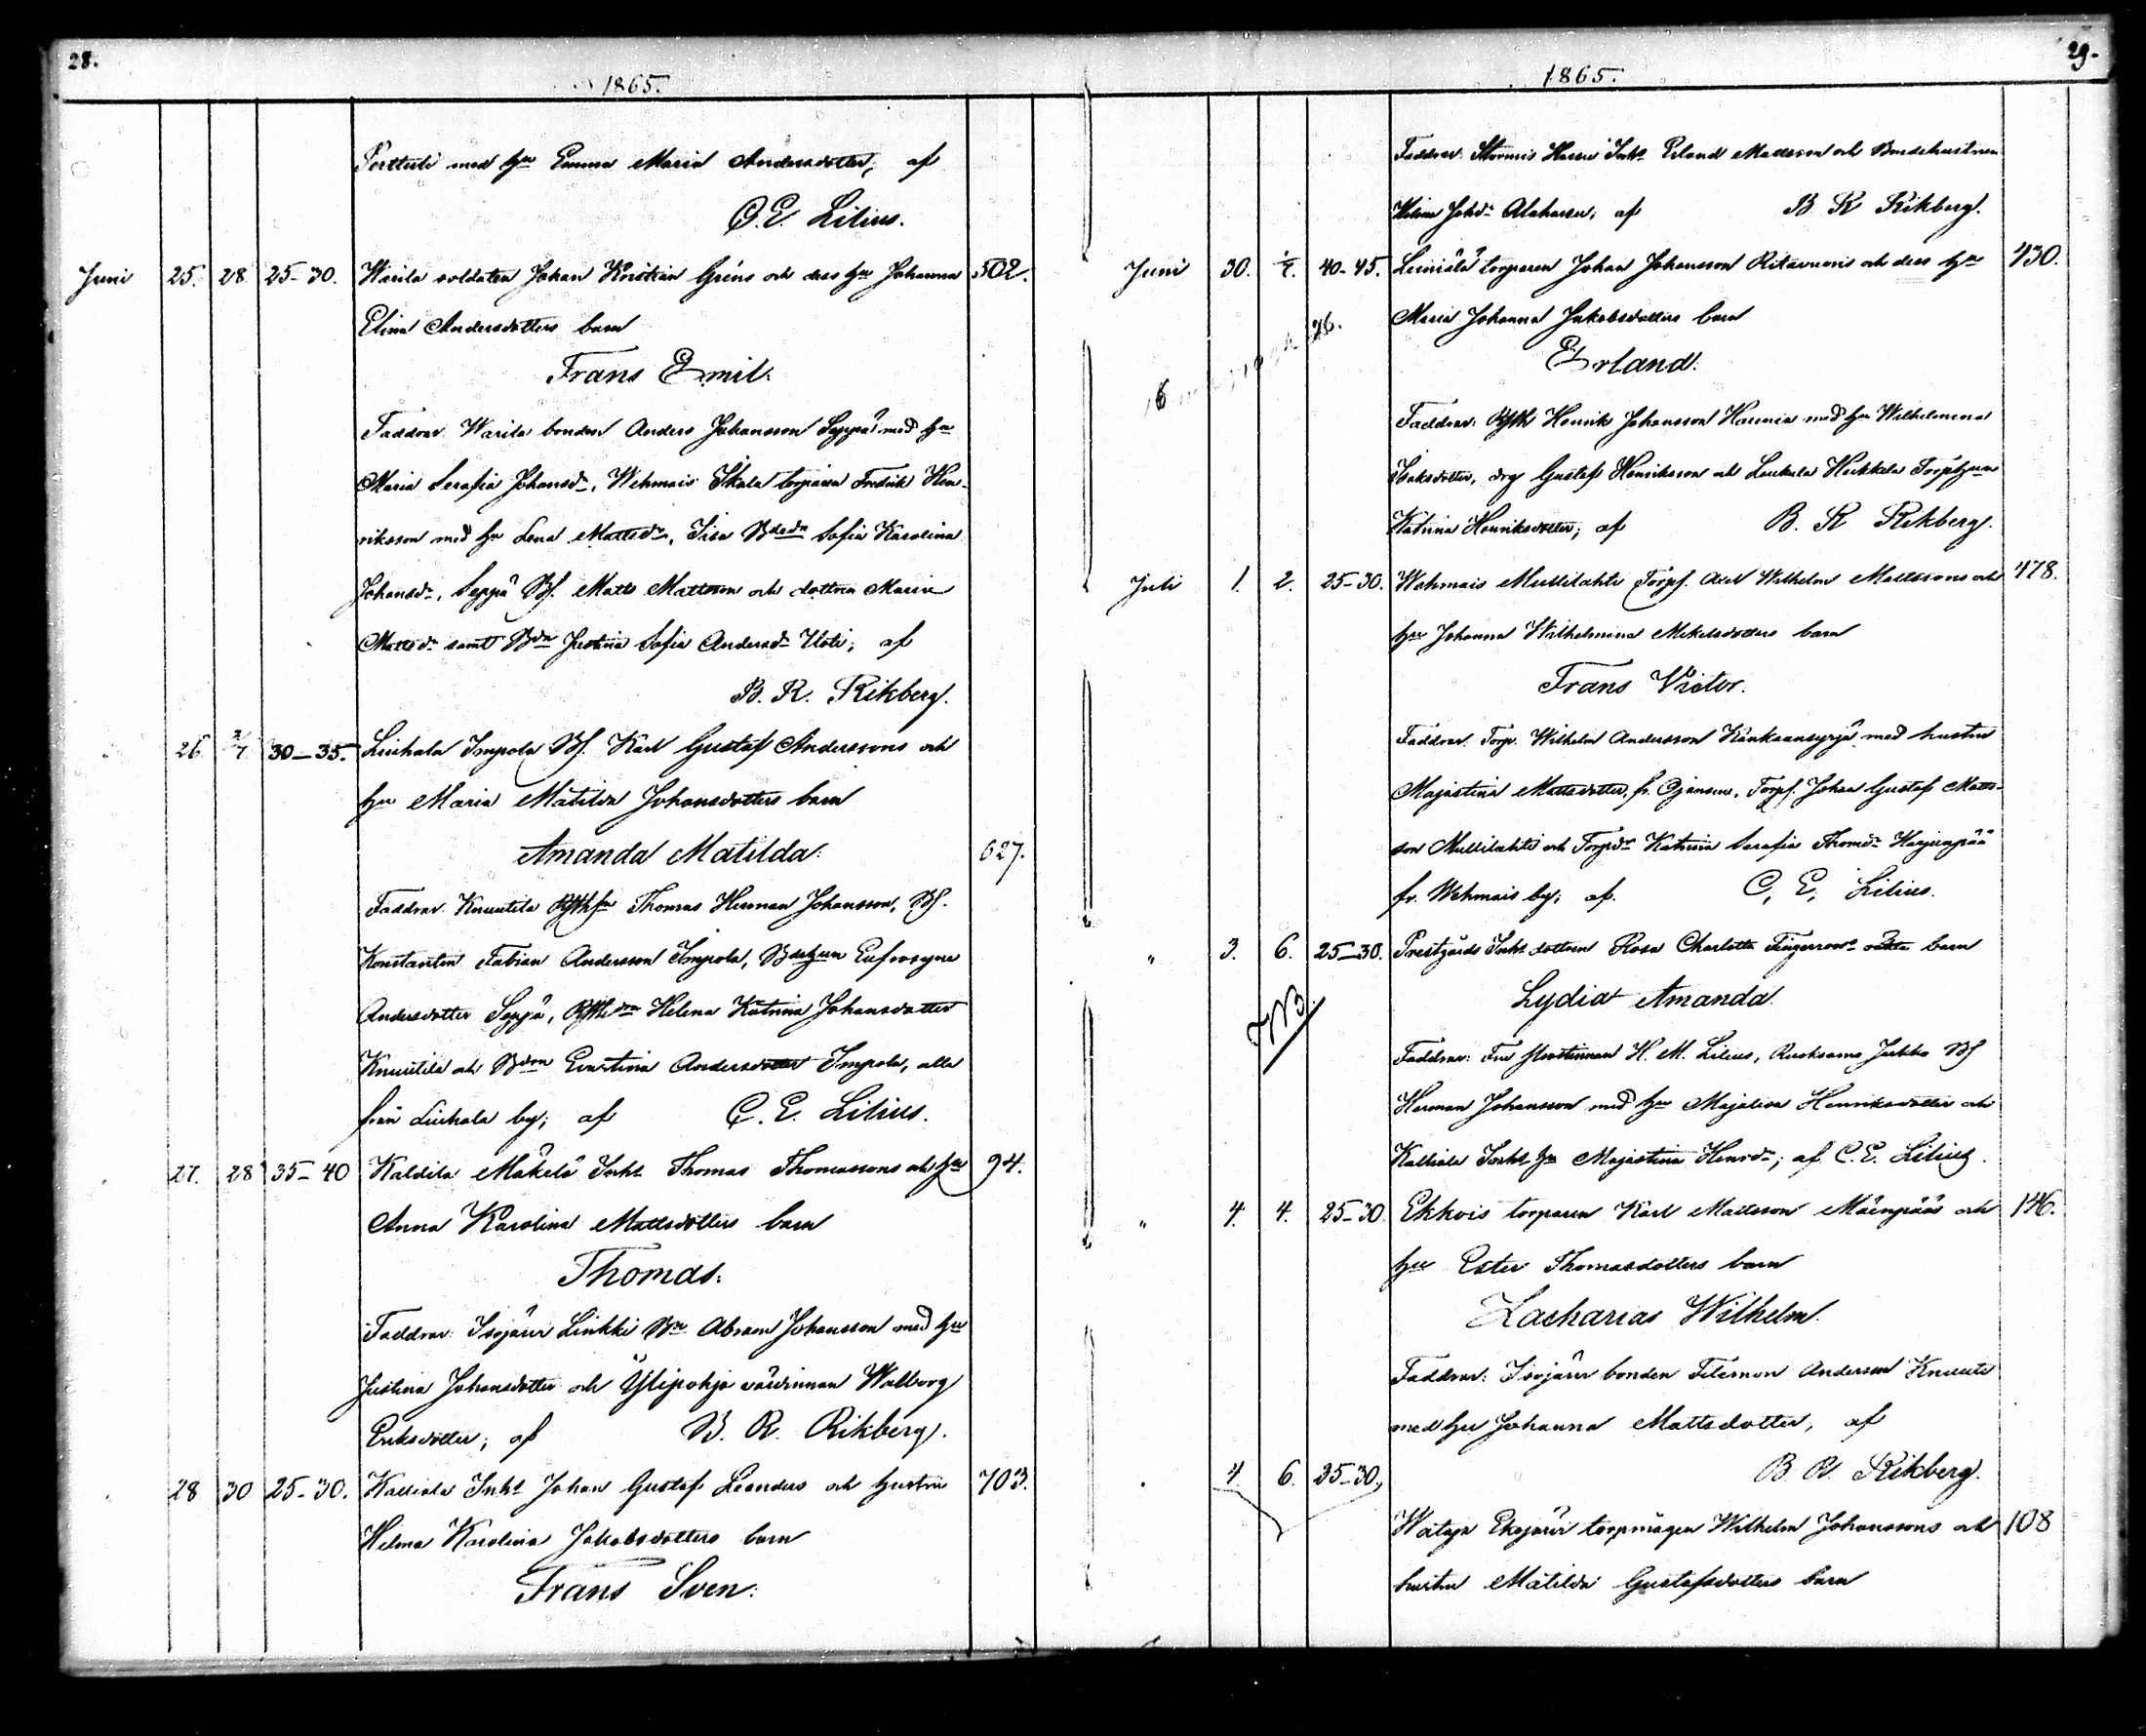 28.
1865.
Perttuli med hu Emma Maria Andersdotter, af
C. E. Lilius.
Juni 25. 28 25-30. Warila soldaten Johan Kristian Gréns och dess hu Johanna 502.
Elina Andersdotters barn
Frans Emil.
Faddrar Warila bonden Anders Johansson Seppä med hu
Maria Serafia Johansdr, Wehmais Skala torparen Fredrik Hen-
riksson med hu Lena Mattsdr, Sisa Sofia Karolina
Johansdr, Seppä Bf. Matts Mattsson och dottren Maria
Mattsdr samt Bdn Justina Sofia Andersdr Uoti; af
B. R. Rikberg.
26 2/7 30-35. Liuhala Impola Bf. Karl Gustaf Anderssons och
hu Maria Matilda Johansdotters barn
Amanda Matilda. 627.
Faddrar. Knuutila Thomas Herman Johansson, Bf.
Konstantin Fabian Andersson Impola, Eufrosyne
Andersdotter Seppä, Helena Katrina Johansdotter
Knuutila och Bdn Evastina Andersdotter Impola, alla
från Liuhala by; af C. E. Lilius.
27. 28 35-40 Kaldila Mäkelä Inht Thomas Thomassons och hu 94.
Anna Karolina Mattsdotters barn
Thomas.
Faddrar: Isojärvi Linkki Bn Abram Johansson med hu
Justina Johansdotter och Ylipohja värdinnan Walborg
Eriksdotter; af B. R. Rikberg.
28 30 25-30. Kalliala Inht Johan Gustaf Leanders och hustru 703.
Hilma Karolina Jakobsdotters barn
Frans Sven.
29.
1865.
Faddrar. Inht Erland Mattsson och Bondehustrun
af B R Rikberg.
Juni 30. 40-45. torparen Johan Johansson Ritavuoris och dess hu 430.
Maria Johanna Jakobsdotters barn
Erland.
Faddrar: Henrik Johansson med hu Wilhelmina
Isaksdotter, drg Gustaf Henriksson och Heikkila
Katrina Henriksdotter; af B. R Rikberg.
Juli 1. 2. 25-30. Wehmais Mullilahti Torpf. Axel Wilhelm Mattssons och 478.
hu Johanna Wilhelmina Mikelsdotters barn
Frans Victor.
Faddrar. Torp. Wilhelm Andersson med hustru
Majastina Mattsdotter, fr. Ojansuu, Torpf. Johan Gustaf Matts-
son Mullilahti och Torpdr Katrina Serafia Thomdr Harjunpää
fr. Wehmais by; af. C. E. Lilius.
" 3. 6. 25-30. Prestgårds Inht dottren Rosa Charlotta oäkta barn
NB.
Lydia Amanda.
Faddrar: Fru Prostinnan H. M. Lilius, Ruoksamo Bf
Herman Johansson med hu Majalisa Henriksdotter och
Kalliala Inht hu Majastina Henrdr; af C. E. Lilius.
" 4. 4. 25-30. Ekkois torparen Karl Mattsson Mäenpääs och 146.
hu Ester Thomasdotters barn
Zacharias Wilhelm.
Faddrar: Isojärvi bonden Filemon Andersson Knuuti
med hu Johanna Mattsdotter, af
B. R. Rikberg.
4. 6. 25-30.
Wataja Ekojärvi torpmågen Wilhelm Johanssons och 108
hustru Matilda Gustafsdotters barn